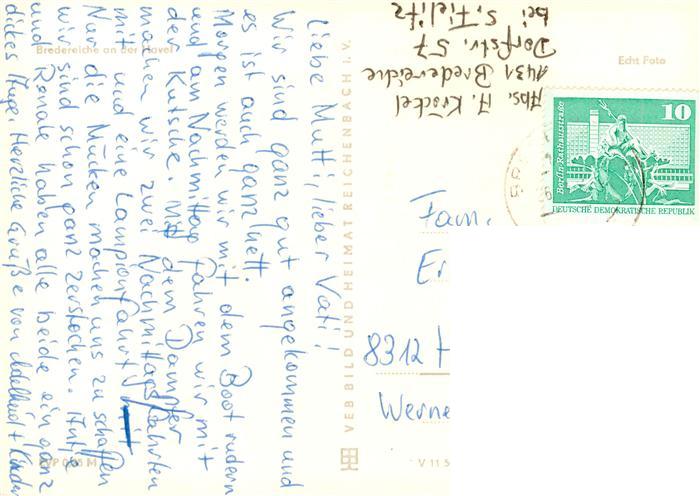 Liebe Mutti, lieber Vati!
Wir sind ganz gut angekommen und
es ist auch ganz nett.
Morgen werden wir mit dem Boot rudern
und am Nachmittag fahren wir mit
der Kutsche. Mit dem Dampfer
machen wir zwei Nachmittagsfahrten
mit und eine Lampionfahrt
Nur die Mücken machen uns zu schaffen
wir sind schon ganz zerstochen. Antje
und Renate haben alle beide ein ganz
dickes Auge Herzliche Grüße von Adelheid + Kinder
Bredereiche an der Havel
VEB BILD UND HEIMAT REICHENBACH I. V.
Abs. A. Kröckel
1431 Bredereiche
Dorfstr. 57
bei S. Fielitz
Echt Foto
10
Berlin-Rathausstraße
DEUTSCHE DEMOKRATISCHE REPUBLIK
Fam.
Er
8312 H
Werne
V 11 5